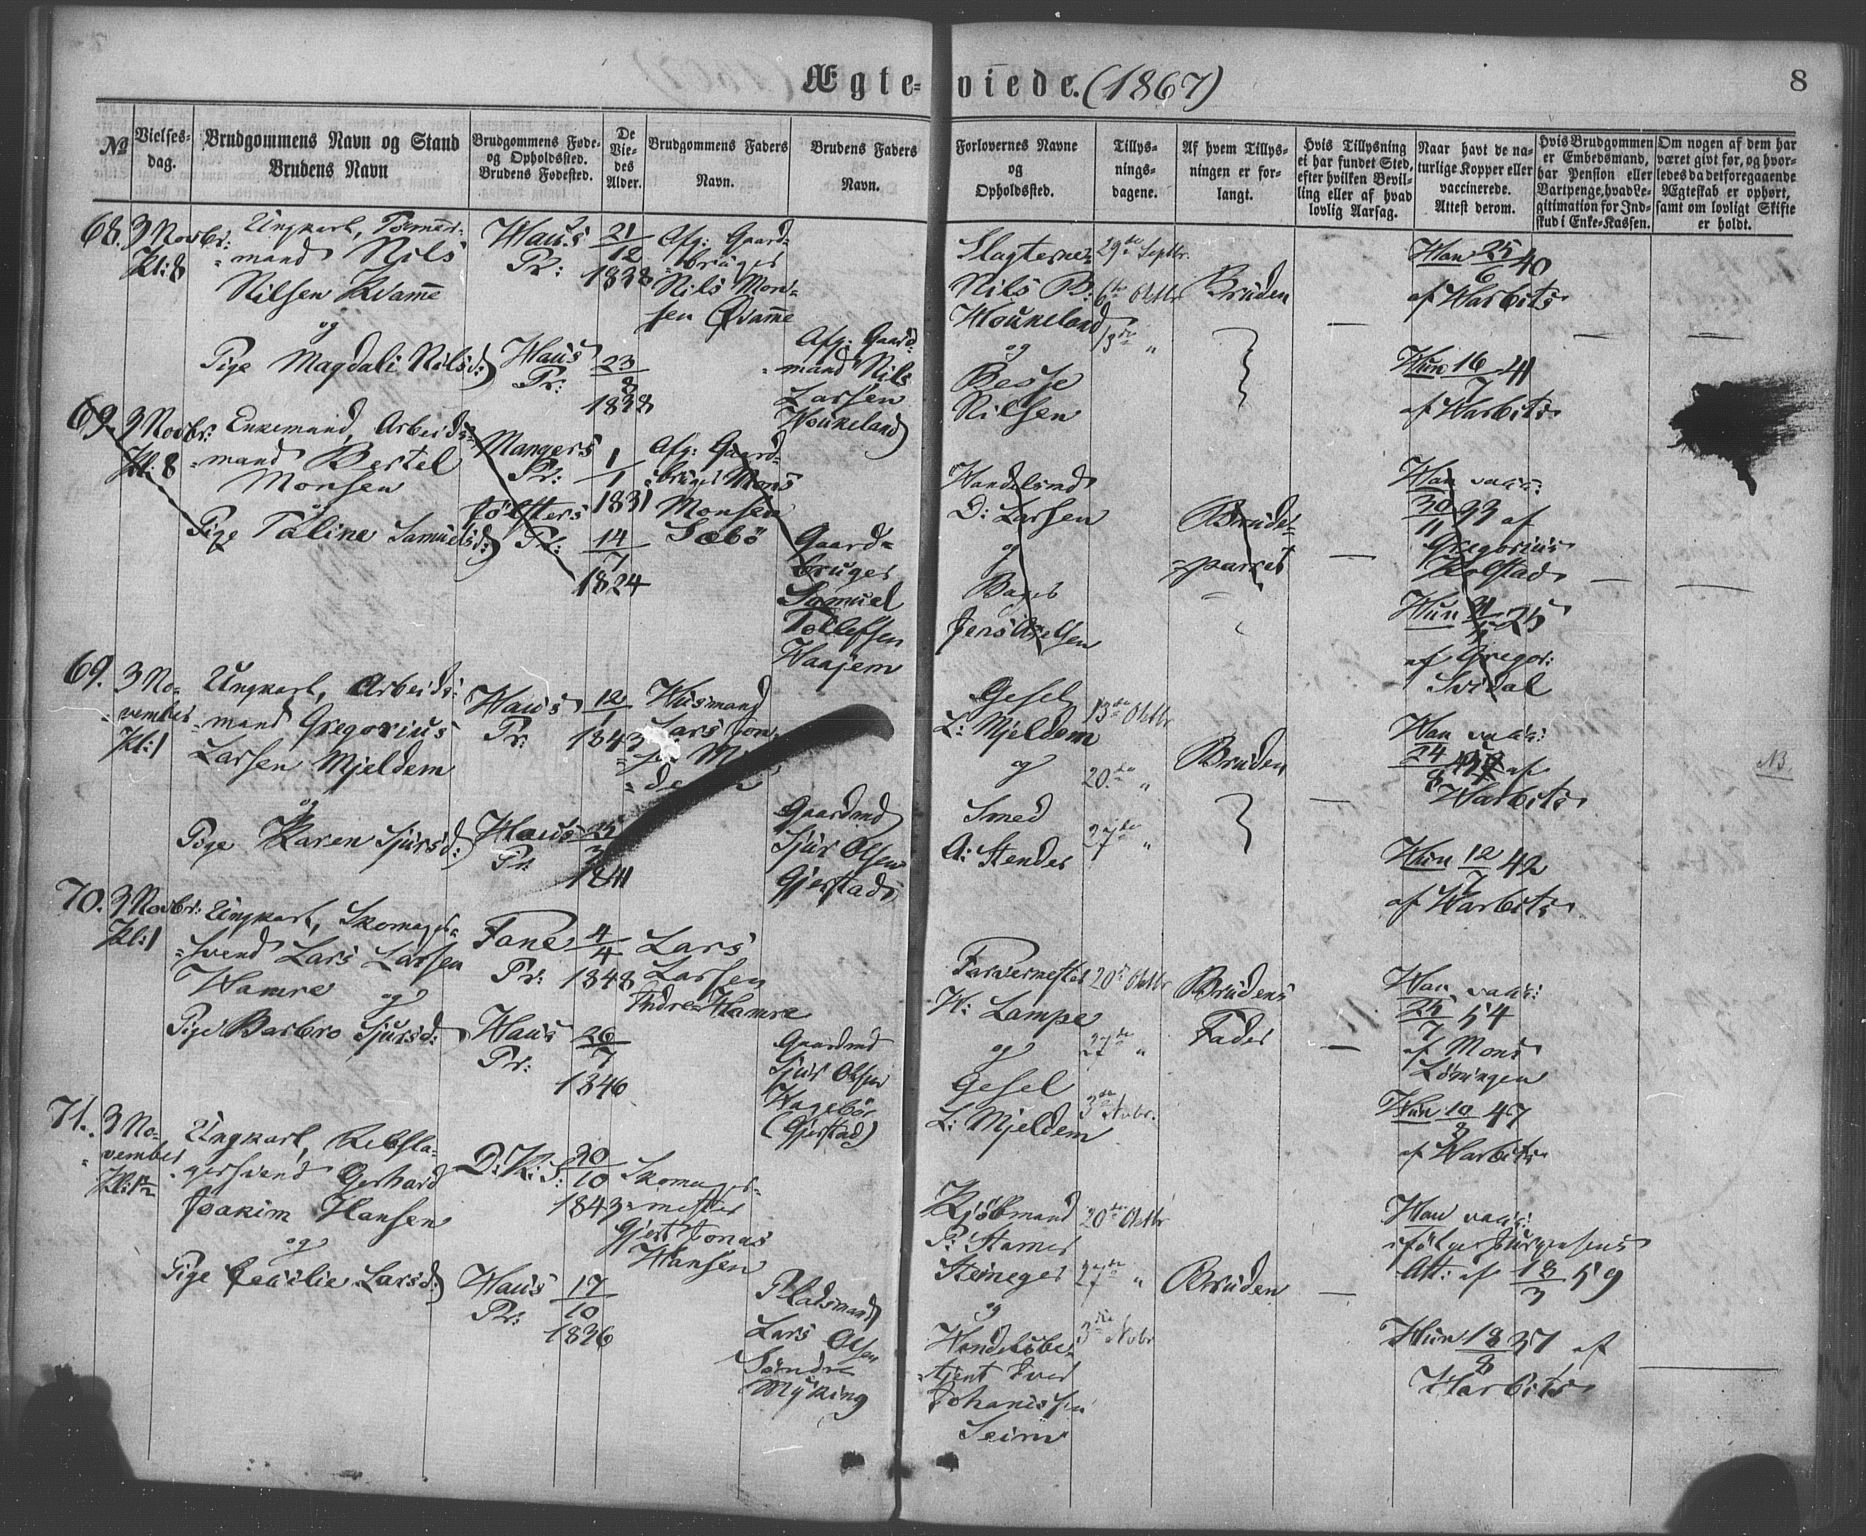 Ægte-viede. (1867)
8
No
Vielses-
dag.
Brudgommens Navn og Stand
Brudens Navn
Brudgommens Føde-
og Opholdssted.
Brudens Fødested.
De
Vie-
des
Alder.
Brudgommens Faders
Navn.
Brudens Faders
Navn.
Forlovernes Navne
og
Opholdssted.
Tillys-
nings-
dagene.
Af hvem Tillys-
ningen er for-
langt.
Hvis Tillysning
ei har fundet Sted,
efter hvilken Bevil-
ling eller af hvad
lovlig Aarsag.
Naar havt de na-
turlige Kopper eller
vaccinerede.
Attest derom.
Hvis Brudgommen
er Embedsmand,
har Pension eller
Vartpenge, hvad Le-
gitimation for Ind-
skud i Enke-Kassen.
Om nogen af dem har
været givt før, og hvor-
ledes da det foregaaende
Ægteskab er ophørt,
samt om lovligt Skifte
er holdt.
68.
3 Novbr:
Kl: 8
Ungkarl, Tømmer-
mand Nils
Nilsen Kvamme
og
Pige Magdali Nilsd:
Haus
Pr:
21
12
1838
Haus
Pr:
23
8
1838
Afg: Gaard-
bruger
Nils Mon-
sen Qvamme
Afg: Gaard-
mand Nils
Larsen
Houkeland
Slagterne
Nils B.
Houkeland
og
Besse
Nilsen
29de Septbr.
6te Oktbr
13de "
Bruden
—
Han 25/6 40
af Harbitz
Hun 16/7 41
af Harbitz
—
—
69.
3 Novbr:
Kl: 8
Enkemand, Arbeids-
mand Bertel
Monsen
og
Pige Taline Samuelsd:
Mangers
Pr:
1
1
1831
Pr:
14
7
1824
Afg: Gaard-
bruger Mons
Monsen
Sæbö
Gaard-
bruger
Samuel
Tollefsen
Haajem
Handelsmd
D: Larsen
og
Bager
Jens Axelsen
Brude-
parret
—
Han vacc:
30/11 33 af
Gregorius
Kolstad
Hun
25
af Gregor:
Svidal
—
—
69.
3 No-
vember
Kl: 1
Ungkarl, Arbeids-
mand Gregorius
Larsen Mjeldem
og
Pige Karen Sjursd:
Haus
Pr:
12
1
1843
Haus
Pr:
25
3
1841
Husmand
Lars
Gaardmd
Sjur Olsen
Gjerstad
Gesel
L: Mjeldem
og
Smed
A: Stender
13de Oktbr
20de "
27de "
Bruden
—
Han vacc:
24/8
af
Harbitz
Hun 12/7 42
af Harbitz
NB.
70.
3 Novbr:
Kl: 1
Ungkarl, Skomager-
svend Lars Larsen
Hamre
og
Pige Barbro Sjursd:
Fane
Pr:
4
4
1848
Haus
Pr:
26
7
1846
Lars
Larsen
Hamre
Gaardmd
Sjur Olsen
Hagebö
(Gjerstad)
Farvermester
H: Lampe
og
Gesel
L: Mjeldem
20de Oktbr
27de "
3die Novbr.
Brudens
Fader
—
Han vacc:
25/7 54
af Mons
Löningen
Hun 10/8 47
af Harbitz
71.
3 No-
vember
Kl: 1½
Ungkarl, Rebsla-
gersvend Gerhard
Joakim Hansen
og
Pige Cecilie Larsd:
D: K: S:
30
10
1843
Haus
Pr:
17
10
1836
Skomager-
mester
Gjert Jonas
Hansen
Pladsmand
Lars Olsen
Söndre
Myking
Kjöbmand
P: Stamer
Steineger
og
Handelsbe-
tjent Iver
Johannessen
Seim
20de Oktbr
27de "
3die Novbr
Bruden
—
Han vacc:
ifölge Jürgensens
Att: af 18/3 59
Hun 18/8 37 af
Harbitz